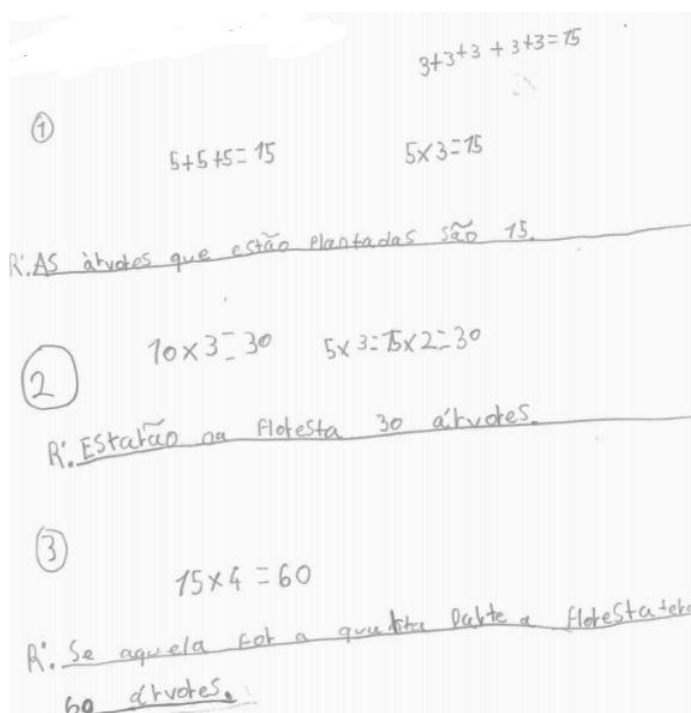 3+3+3+3+3=15
①
5+5+5=15 5×3=15
R: As árvores que estão plantadas são 15.
10×3=30 5×3=15×2=30
②
R: Estarão na floresta 30 árvores.
③
15×4=60
R: Se aquela for a quarta parte a floresta terá
60 árvores.